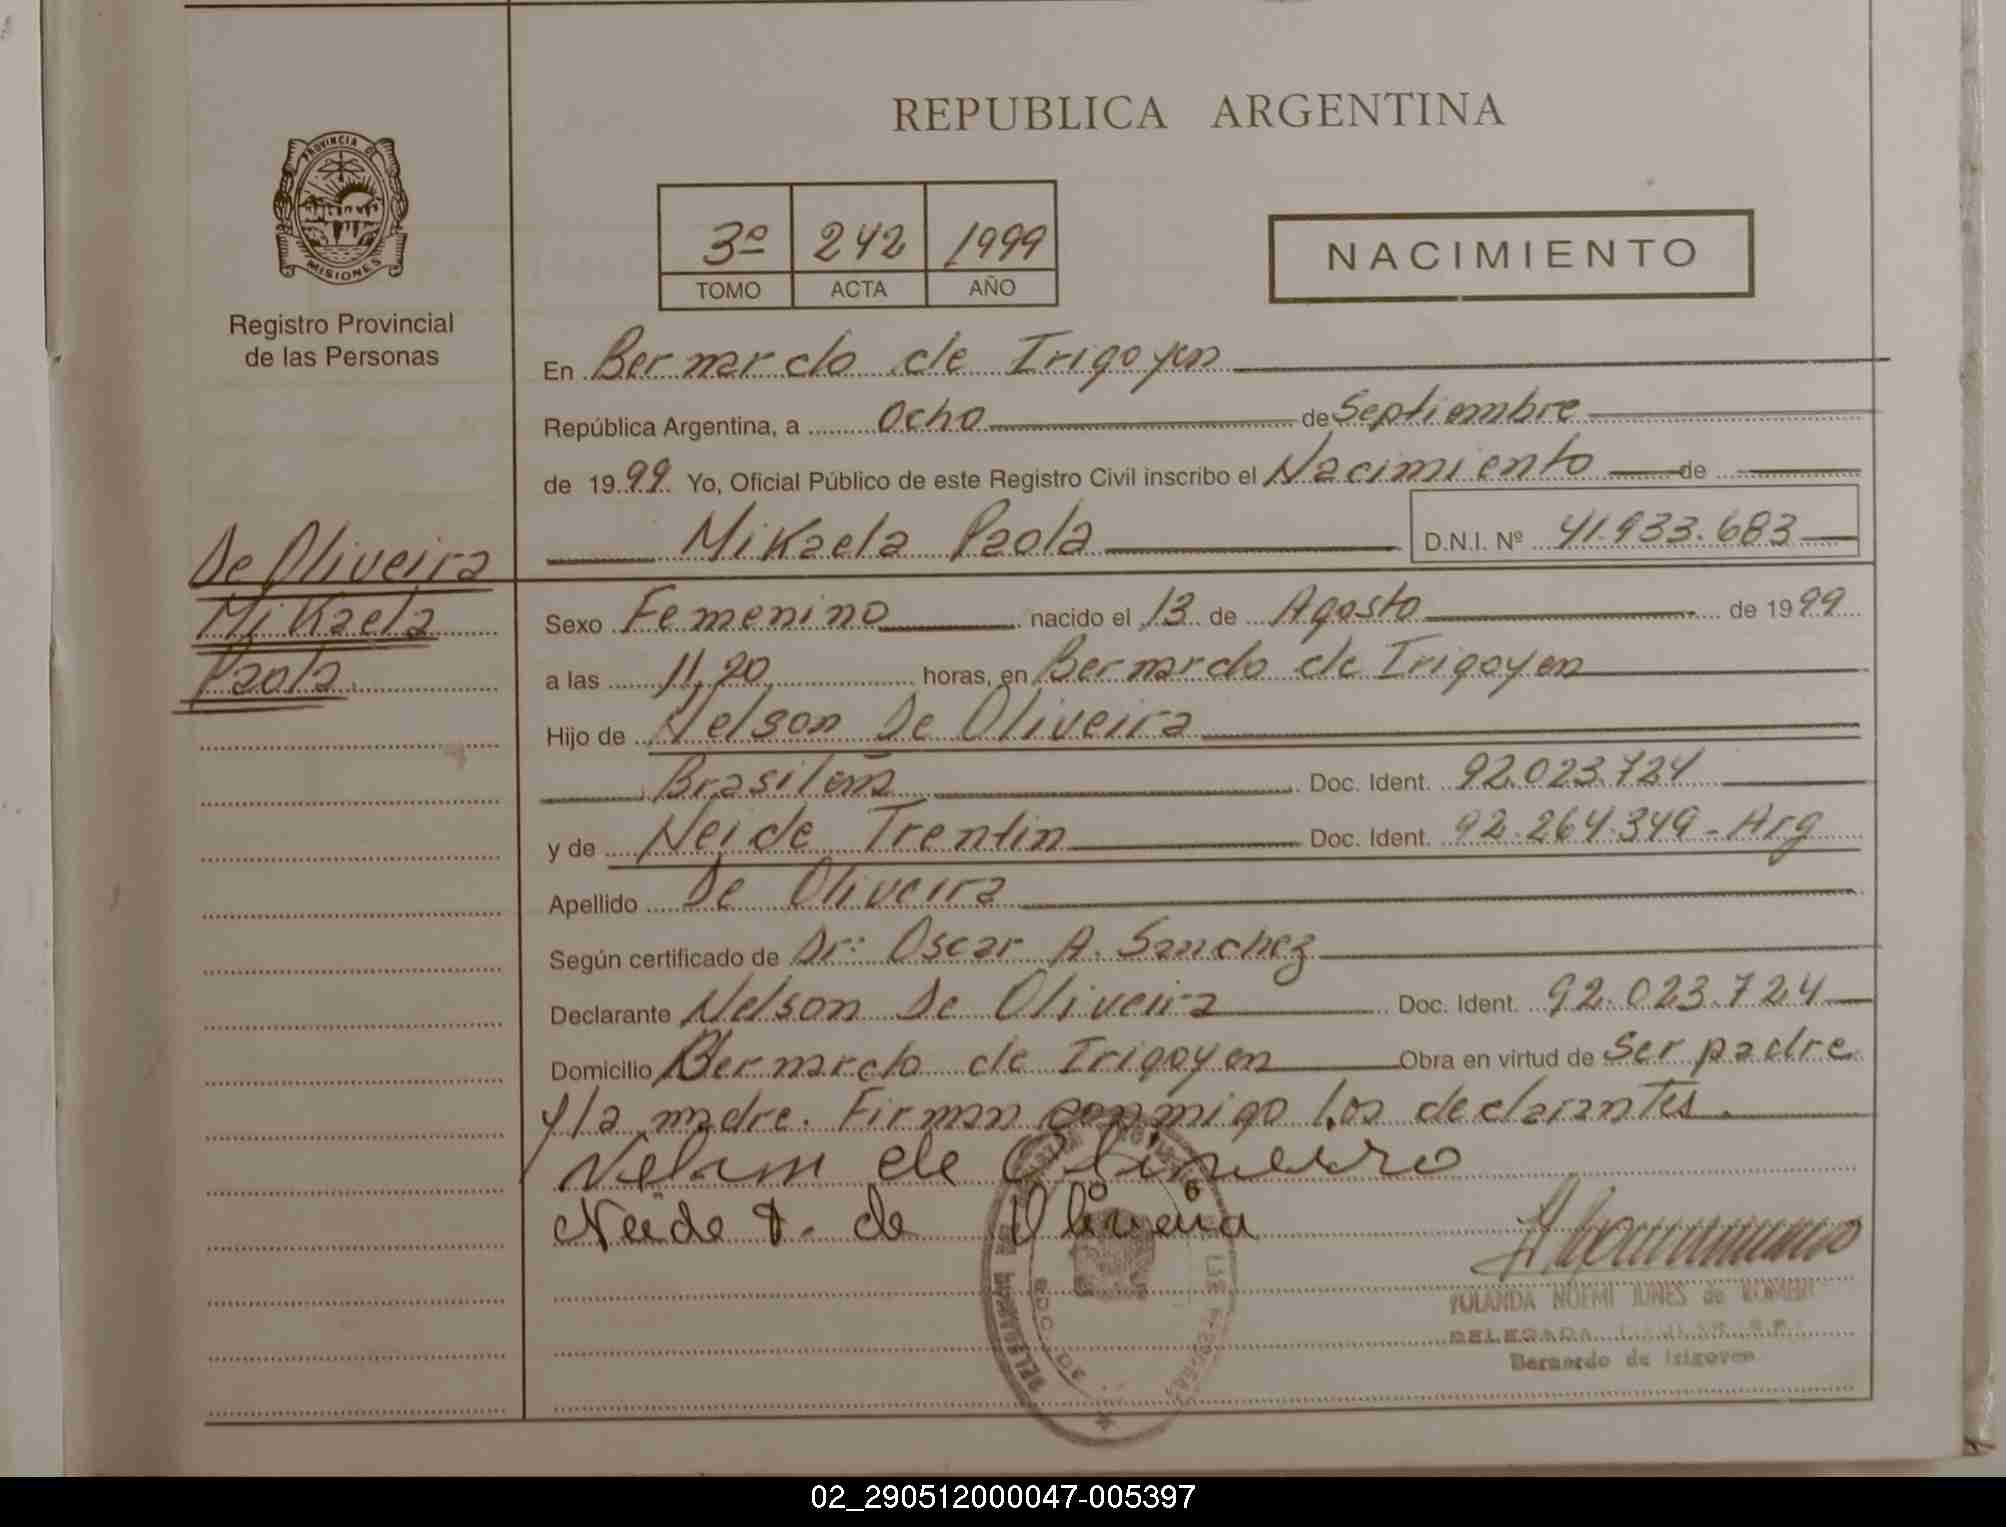 REPUBLICA ARGENTINA
PROVINCIA DE
MISIONES
Registro Provincial
de las Personas
3º 242 1999
TOMO ACTA AÑO
NACIMIENTO
En Bernardo de Irigoyen
República Argentina, a Ocho de Septiembre
de 1999 Yo, Oficial Público de este Registro Civil inscribo el Nacimiento de
Mikaela Paola D.N.I. Nº 41.933.683
De Oliveira
Mikaela
Paola
Sexo Femenino nacido el 13 de Agosto de 1999
a las 11,20 horas, en Bernardo de Irigoyen
Hijo de Nelson De Oliveira
Brasileña Doc. Ident. 92.023.724
y de Neide Trentin Doc. Ident. 92.264.349 - Arg
Apellido De Oliveira
Según certificado de Dr: Oscar A. Sanchez
Declarante Nelson De Oliveira Doc. Ident. 92.023.724
Domicilio Bernardo de Irigoyen Obra en virtud de Ser padre
y la madre. Firman conmigo los declarantes.
de
Neide T. de Oliveira
YOLANDA NOEMI de
DELEGADA
Bernardo de Irigoyen
02_290512000047-005397